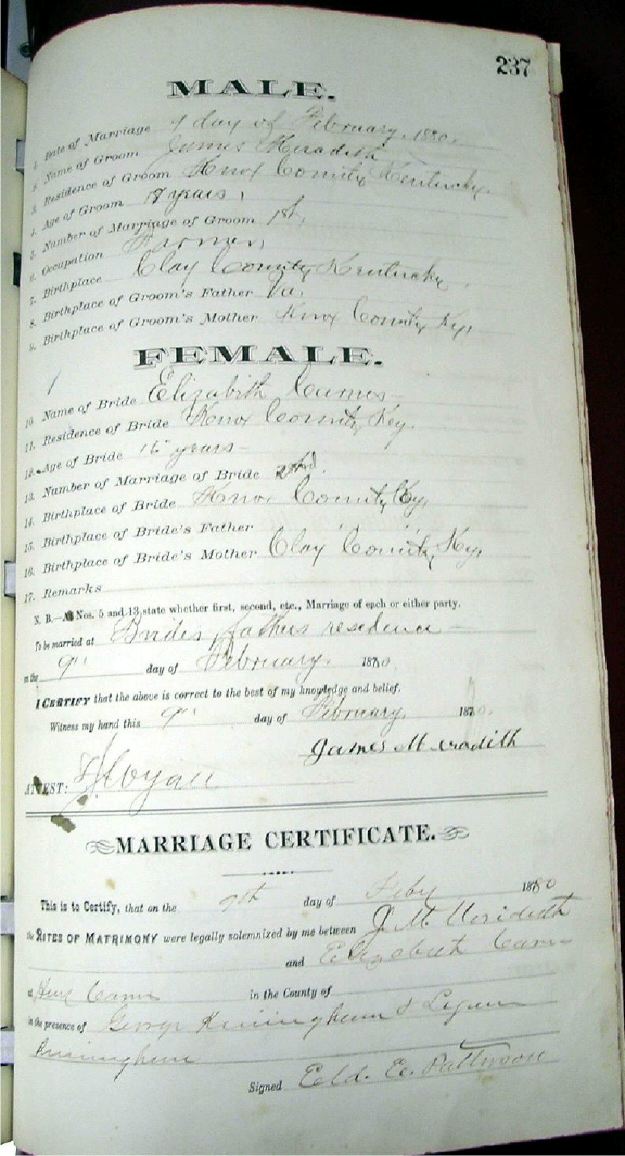 237
MALE.
1. Date of Marriage 9 day of February, 1880.
2. Name of Groom James Meradith
3. Residence of Groom Knox County Kentucky.
4. Age of Groom years,
5. Number of Marriage of Groom 1st,
6. Occupation Farmer,
7. Birthplace Clay County Kentucky,
8. Birthplace of Groom's Father Va.
9. Birthplace of Groom's Mother Knox County Ky,
FEMALE.
10. Name of Bride Elizabeth Carnes
11. Residence of Bride Knox County, Key.
12. Age of Bride years
13. Number of Marriage of Bride
14. Birthplace of Bride Knox County Ky,
15. Birthplace of Bride's Father " " "
16. Birthplace of Bride's Mother Clay County, Ky,
17. Remarks
N. B.—At Nos. 5 and 13, state whether first, second, etc., Marriage of each or either party.
To be married at Brides fathers residence
on the 9" day of February, 1880.
I CERTIFY that the above is correct to the best of my knowledge and belief.
Witness my hand this 9" day of February, 1880.
James Meradith
ATTEST:
MARRIAGE CERTIFICATE.
This is to Certify, that on the 9th day of Feby 1880
the RITES OF MATRIMONY were legally solemnized by me between J M Meridith
and Elizabeth Carns
at in the County of
in the presence of George &
Signed Eld. E.